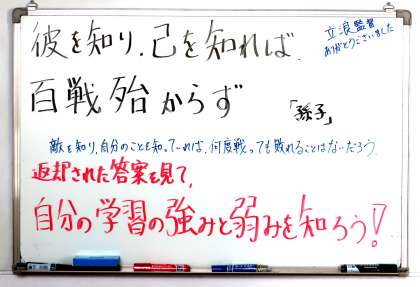 彼を知り、己を知れば、
百戦殆からず
「孫子」
立浪監督
ありがとうございました
敵を知り、自分のことを知っていれば、何度戦っても敗れることはないだろう。
返却された答案を見て、
自分の学習の強みと弱みを知ろう!